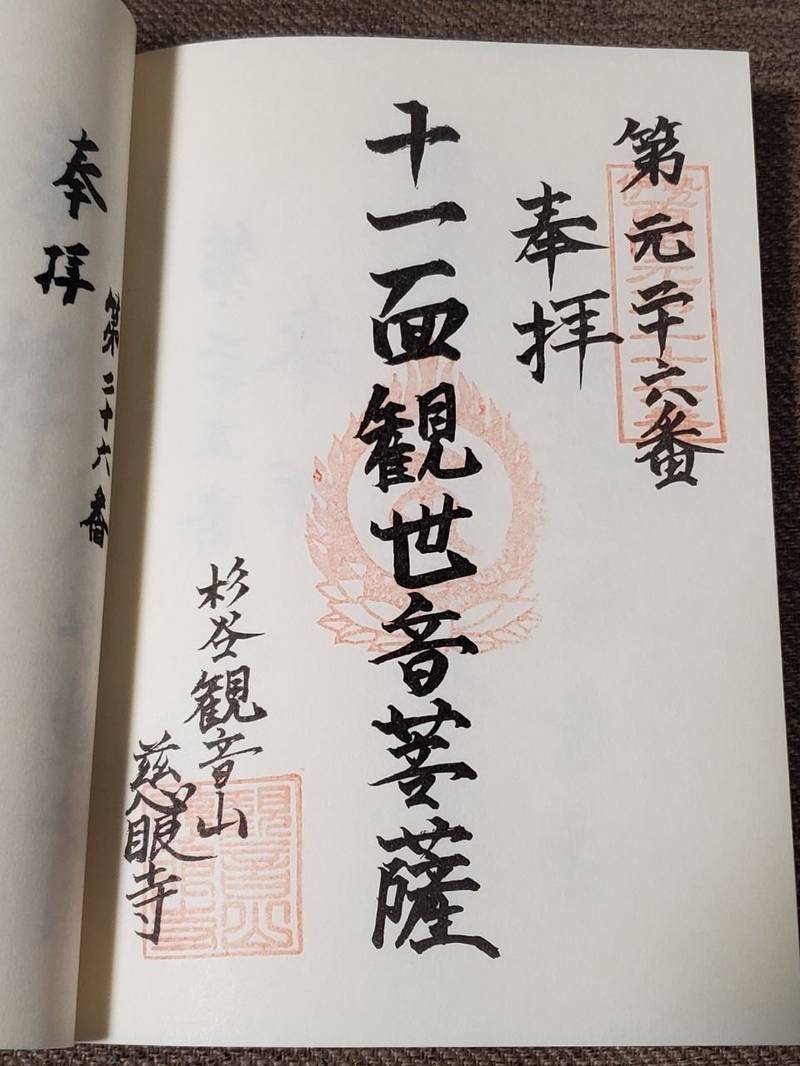 第元二十六番
奉拝
十一面観世音菩薩
杉谷観音山
慈眼寺
觀音山
第二十六番
奉拝